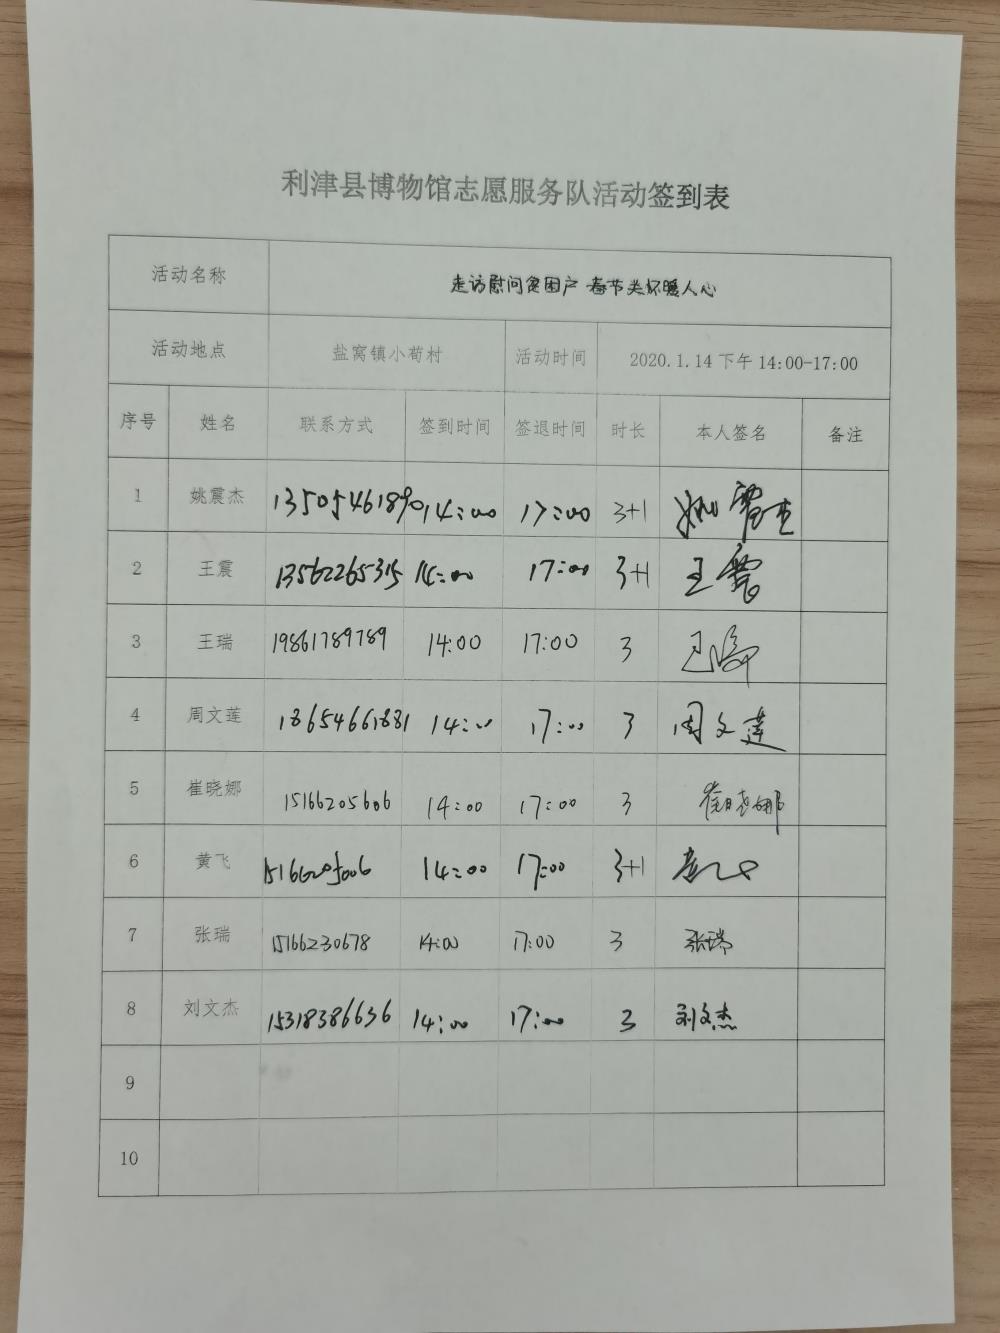 利津县博物馆志愿服务队活动签到表
活动名称 走访慰问贫困户 春节关怀暖人心
活动地点 盐窝镇小荀村 活动时间 2020.1.14 下午 14:00-17:00
序号 姓名 联系方式 签到时间 签退时间 时长 本人签名 备注
1 姚震杰 13505461890 14:00 17:00 3+1 姚震杰
2 王震 13562265315 14:00 17:00 3+1 王震
3 王瑞 19861789789 14:00 17:00 3 王瑞
4 周文莲 18654661881 14:00 17:00 3 周文莲
5 崔晓娜 15166205606 14:00 17:00 3 崔晓娜
6 黄飞 14:00 17:00 3+1
7 张瑞 15166230678 14:00 17:00 3 张瑞
8 刘文杰 15318386636 14:00 17:00 3 刘文杰
9
10